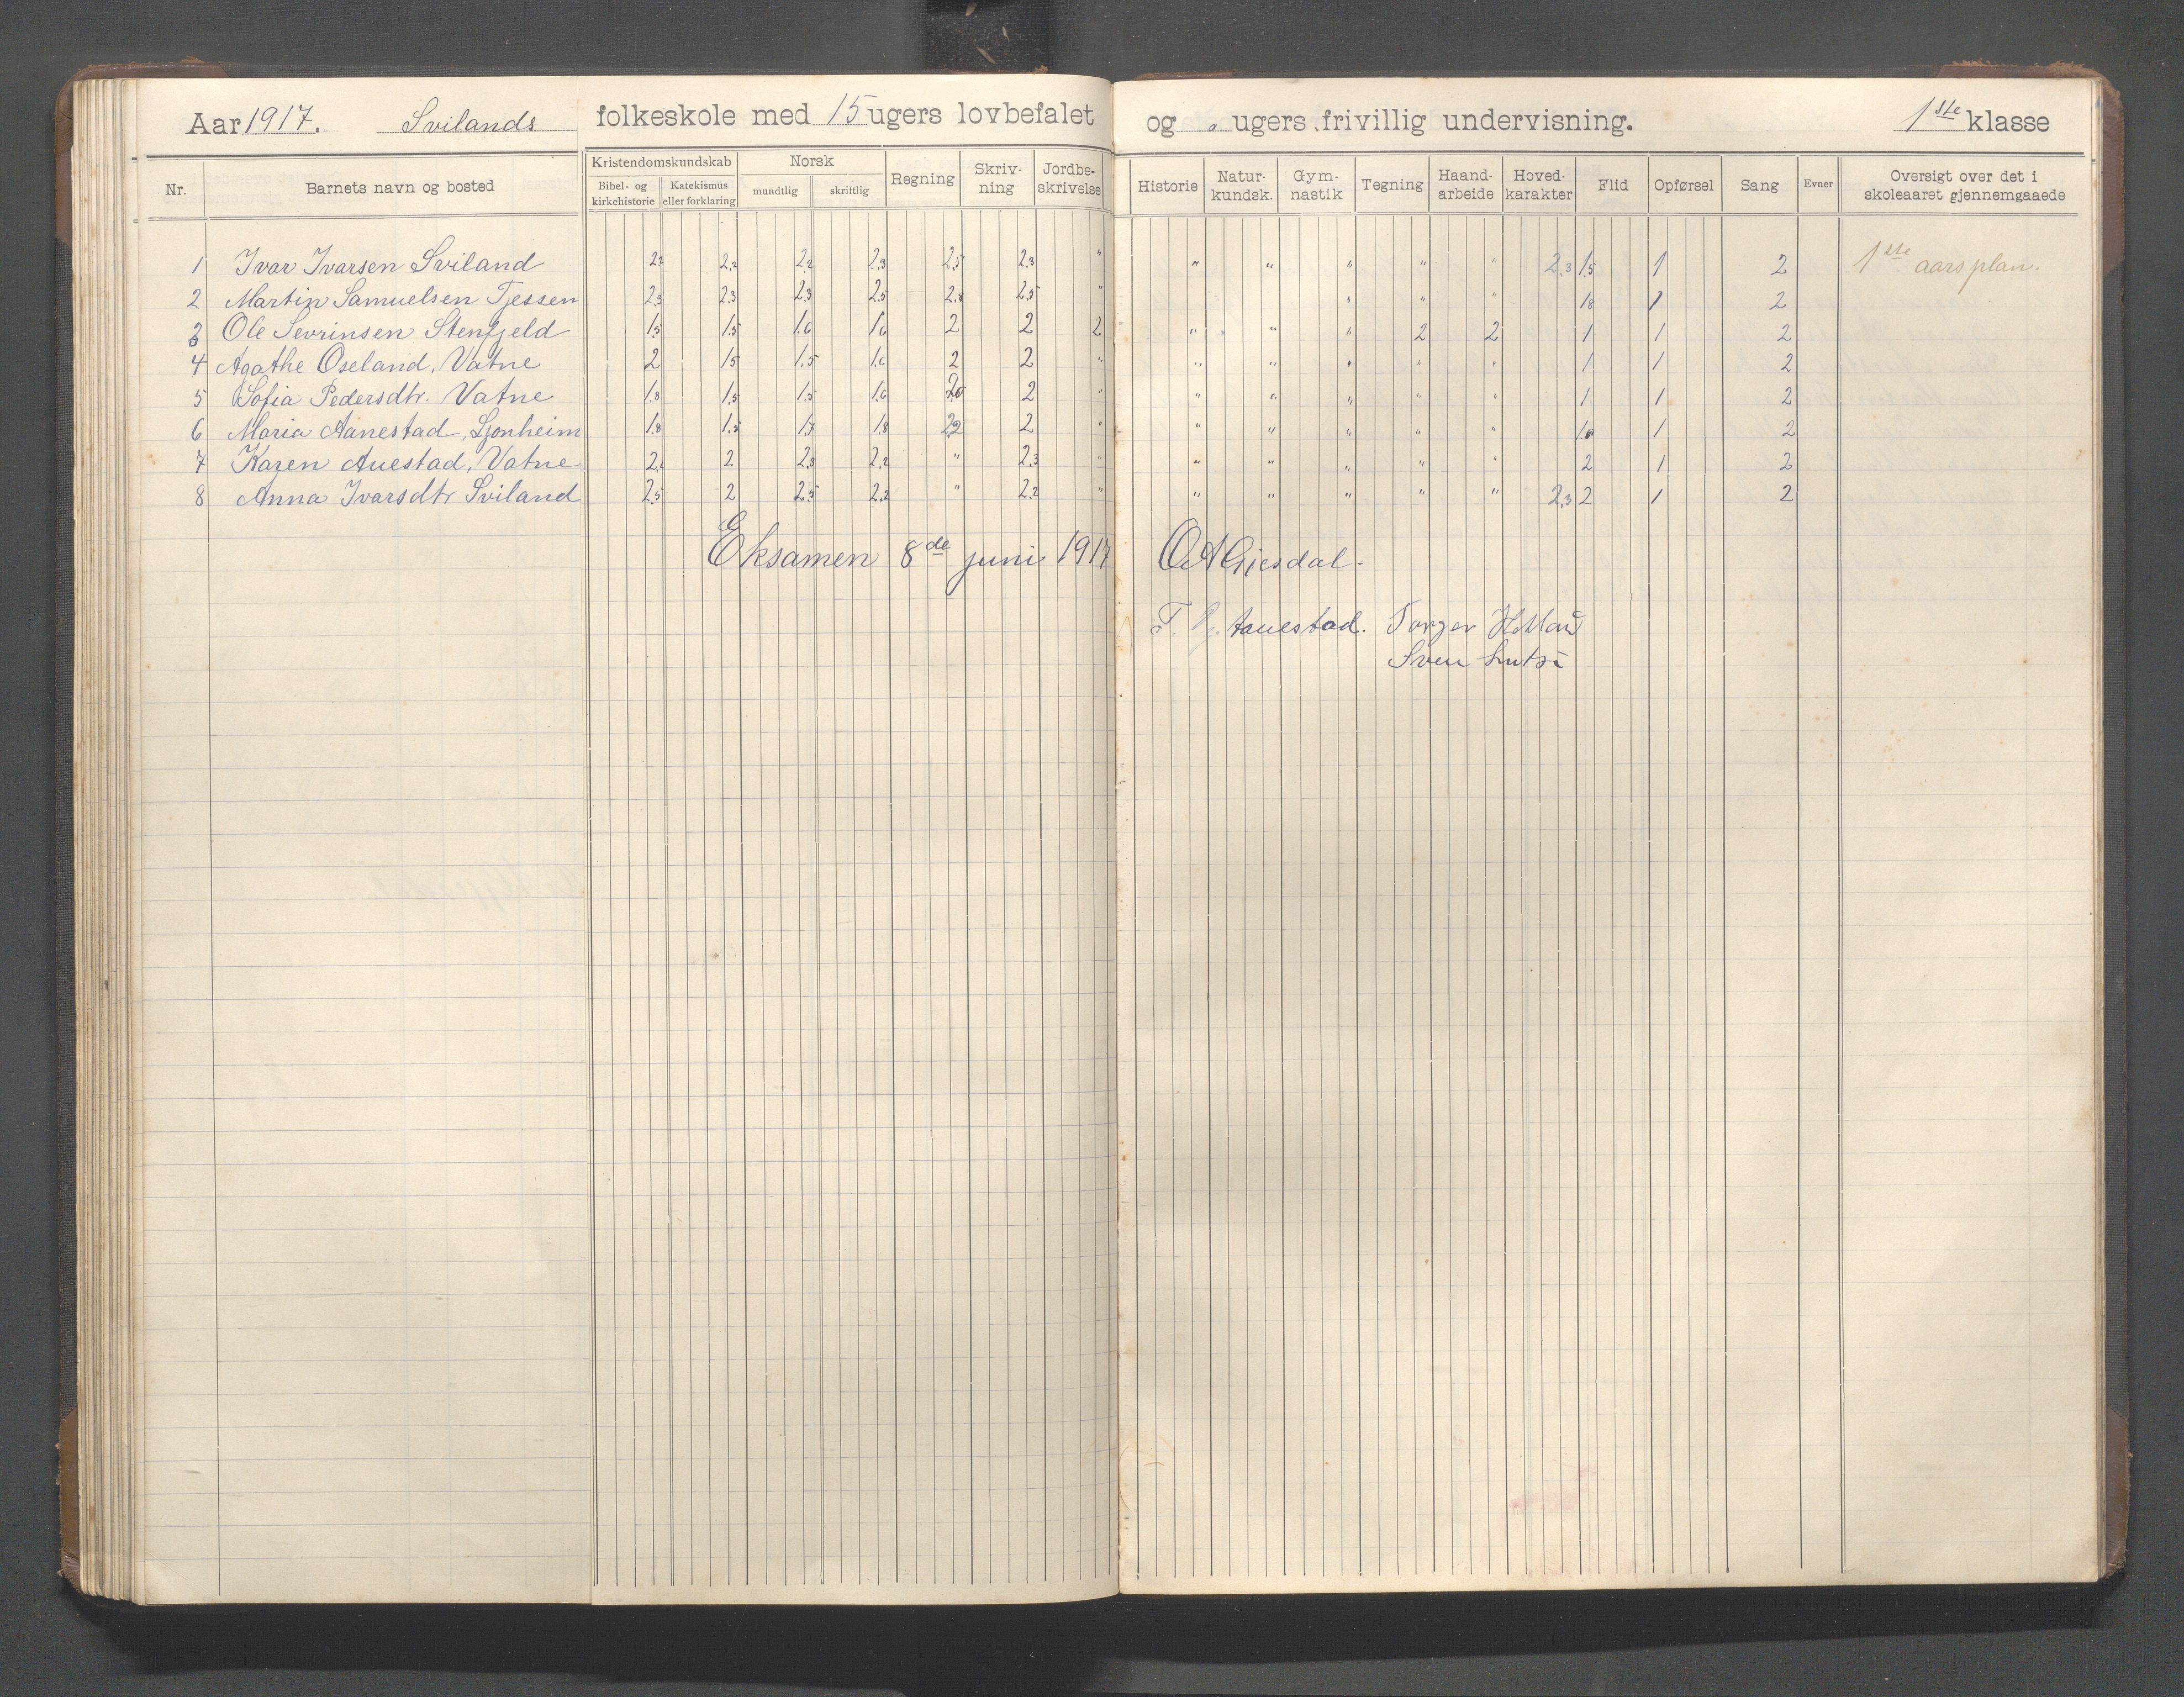 Aar 1917. Svilands folkeskole med 15 ugers lovbefalet og " ugers frivillig undervisning. 1ste klasse
Nr. Barnets navn og bosted Kristendomskundskab Bibel- og kirkehistorie Katekismus eller forklaring Norsk mundtlig skriftlig Regning Skriv-ning Jordbe-skrivelse Historie Natur-kundsk. Gym-nastik Tegning Haand-arbeide Hoved-karakter Flid Opførsel Sang Evner Oversigt over det i skoleaaret gjennemgaaede
1 Ivar Ivarsen Sviland 2,2 2,2 2,2 2,3 2,5 2,3 " " " " " " 2,3 1,5 1 2 1ste aarsplan.
2 Martin Samuelsen Tjessem 2,3 2,3 2,3 2,5 2,8 2,5 " " " " 1,8 1 2
3 Ole Sevrinsen Stenfjeld 1,5 1,5 1,6 1,6 2 2 2 " " " 2 2 1 1 2
4 Agathe Oseland, Vatne 2 1,5 1,5 1,6 2 2 " " " " " " 1 1 2
5 Sofia Pedersdtr. Vatne 1,8 1,5 1,5 1,6 2 " " " " " " 1 1 2
6 Maria Aanestad, Ljonheim 1,8 1,5 1,7 1,8 2,2 2 " " " " " " 1 2
7 Karen Auestad, Vatne 2 2,3 2,2 " 2,3 " " " " " " 2 1 2
8 Anna Ivarsdtr Sviland 2,5 2 2,5 2,2 " 2,2 " " " " " " 2,3 2 1 2
Eksamen 8de juni 1917 O A Gjesdal.
T. Aanestad. Torger
Sven